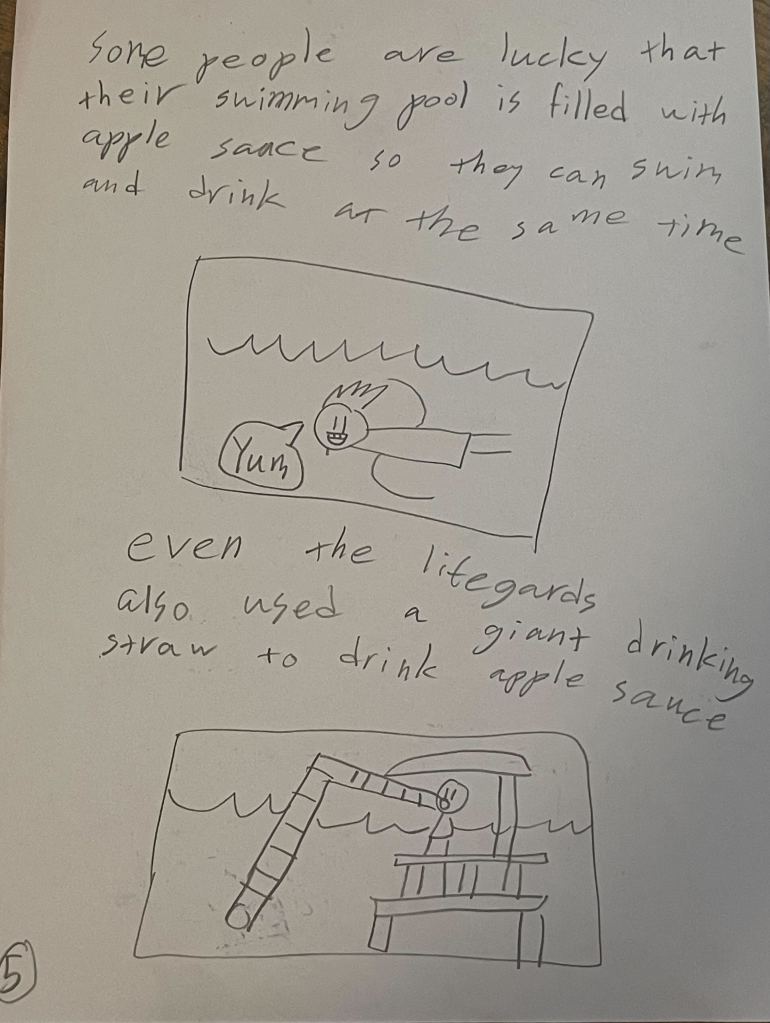 some people are lucky that
their swimming pool is filled with
apple sauce so they can swim
and drink at the same time
Yum
even the lifegards
also used a giant drinking
straw to drink apple sauce
5